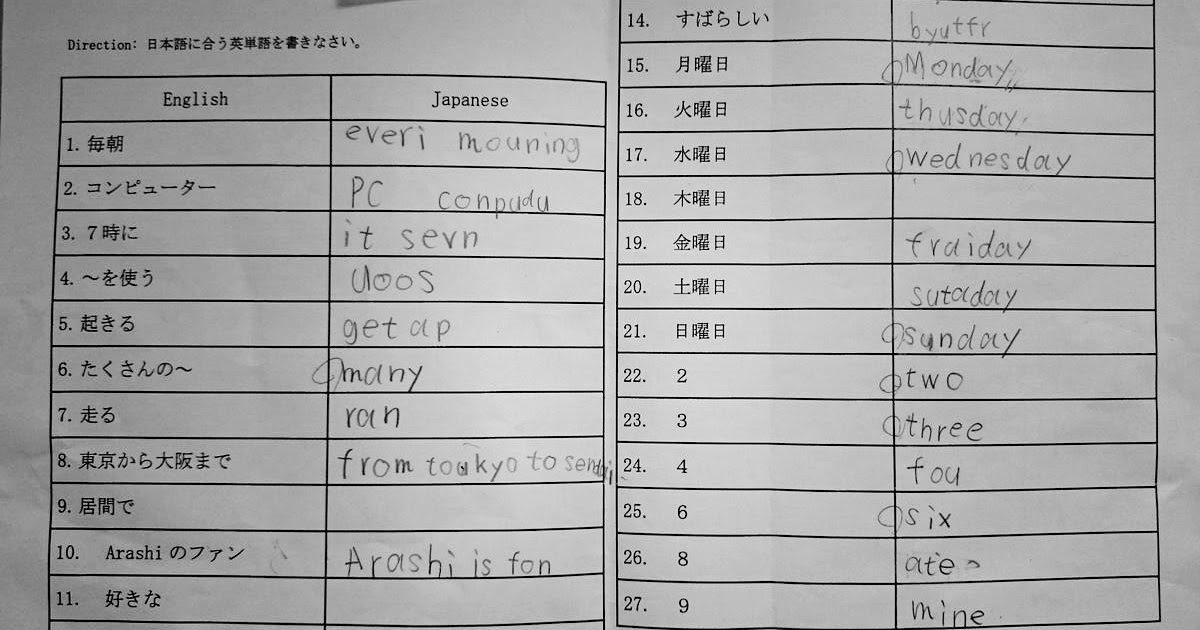 Direction: 日本語に合う英単語を書きなさい。
English Japanese
1. 毎朝 everi mouning
2. コンピューター PC conpudu
3. 7時に it sevn
4. ～を使う Uoos
5. 起きる get ap
6. たくさんの～ many
7. 走る ran
8. 東京から大阪まで from toukyo to sendai
9. 居間で
10. Arashi のファン Arashi is fon
11. 好きな
14. すばらしい byutfr
15. 月曜日 Monday
16. 火曜日 thusday
17. 水曜日 Wednesday
18. 木曜日
19. 金曜日 fraiday
20. 土曜日 sutaday
21. 日曜日 sunday
22. 2 two
23. 3 three
24. 4 fou
25. 6 six
26. 8 ate
27. 9 mine